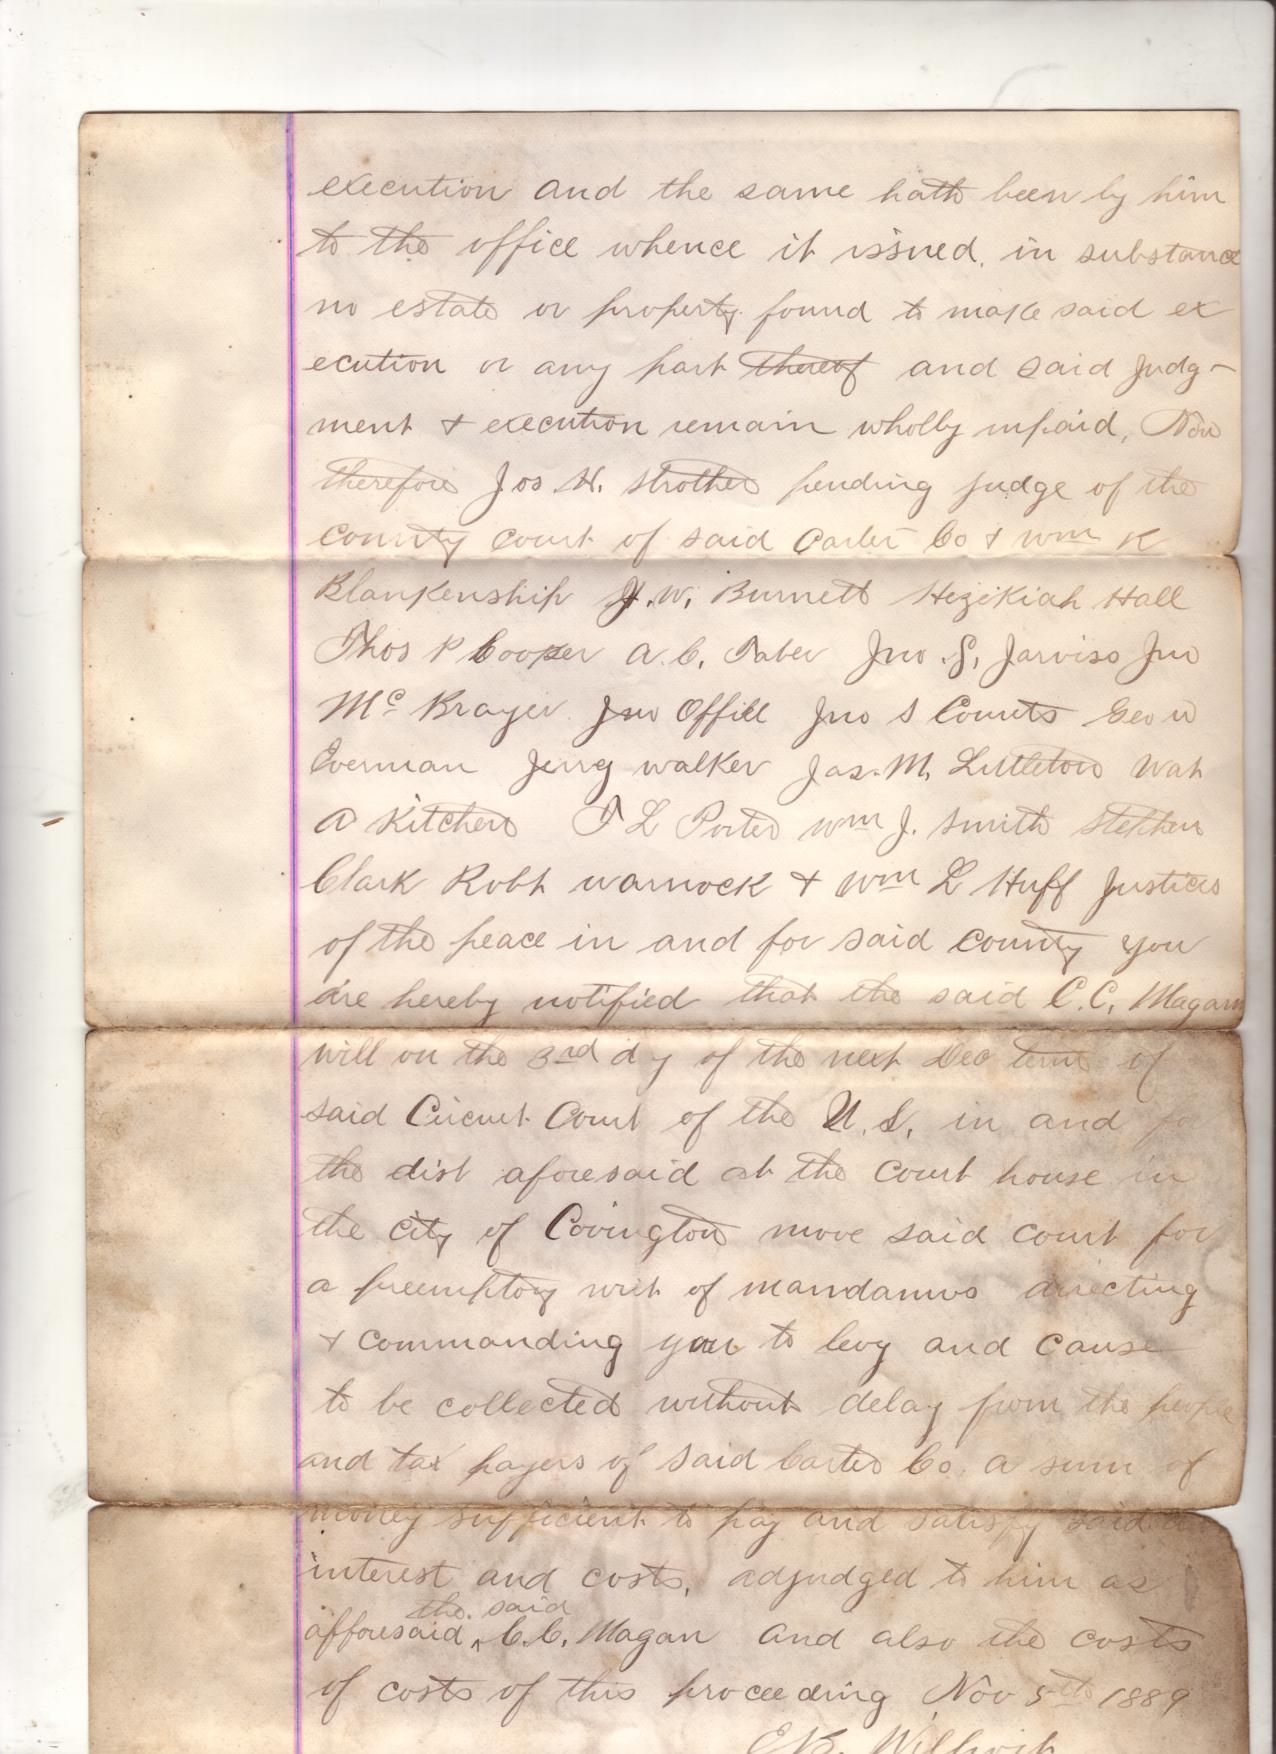 execution and the same hath been by him
to the office whence it issued, in substance
no estate or property found to make said ex
ecution or any part thereof and said Judg-
ment & execution remain wholly unpaid, Now
therefore Jos H. Strother pending judge of the
county court of said Carter Co & Wm K
Blankenship J. W. Burnett Hezikiah Hall
Thos P Cooper A. C. Taber Jno S, Jarviso Jno
Mc Brayer Jno Offill Jno S Counts Geo W
Everman Jerry walker Jas. M. Littleton Wat
A Kitchen T L Porter Wm J. Smith Stephen
Clark Robt warnock & Wm L Huff Justices
of the peace in and for said county you
are hereby notified that the said C. C. Magann
will on the 3rd dy of the next Dec term of
said Circuit Court of the U. S. in and for
the dist aforesaid at the court house in
the city of Covington move said court for
a preemptory writ of mandamus directing
& commanding you to levy and cause
to be collected without delay from the people
and tax payers of said Carter Co. a sum of
money sufficient to pay and satisfy said
interest and costs, adjudged to him as
afforesaid, the said C. C. Magan and also the costs
of costs of this proceeding Nov 5th 1889